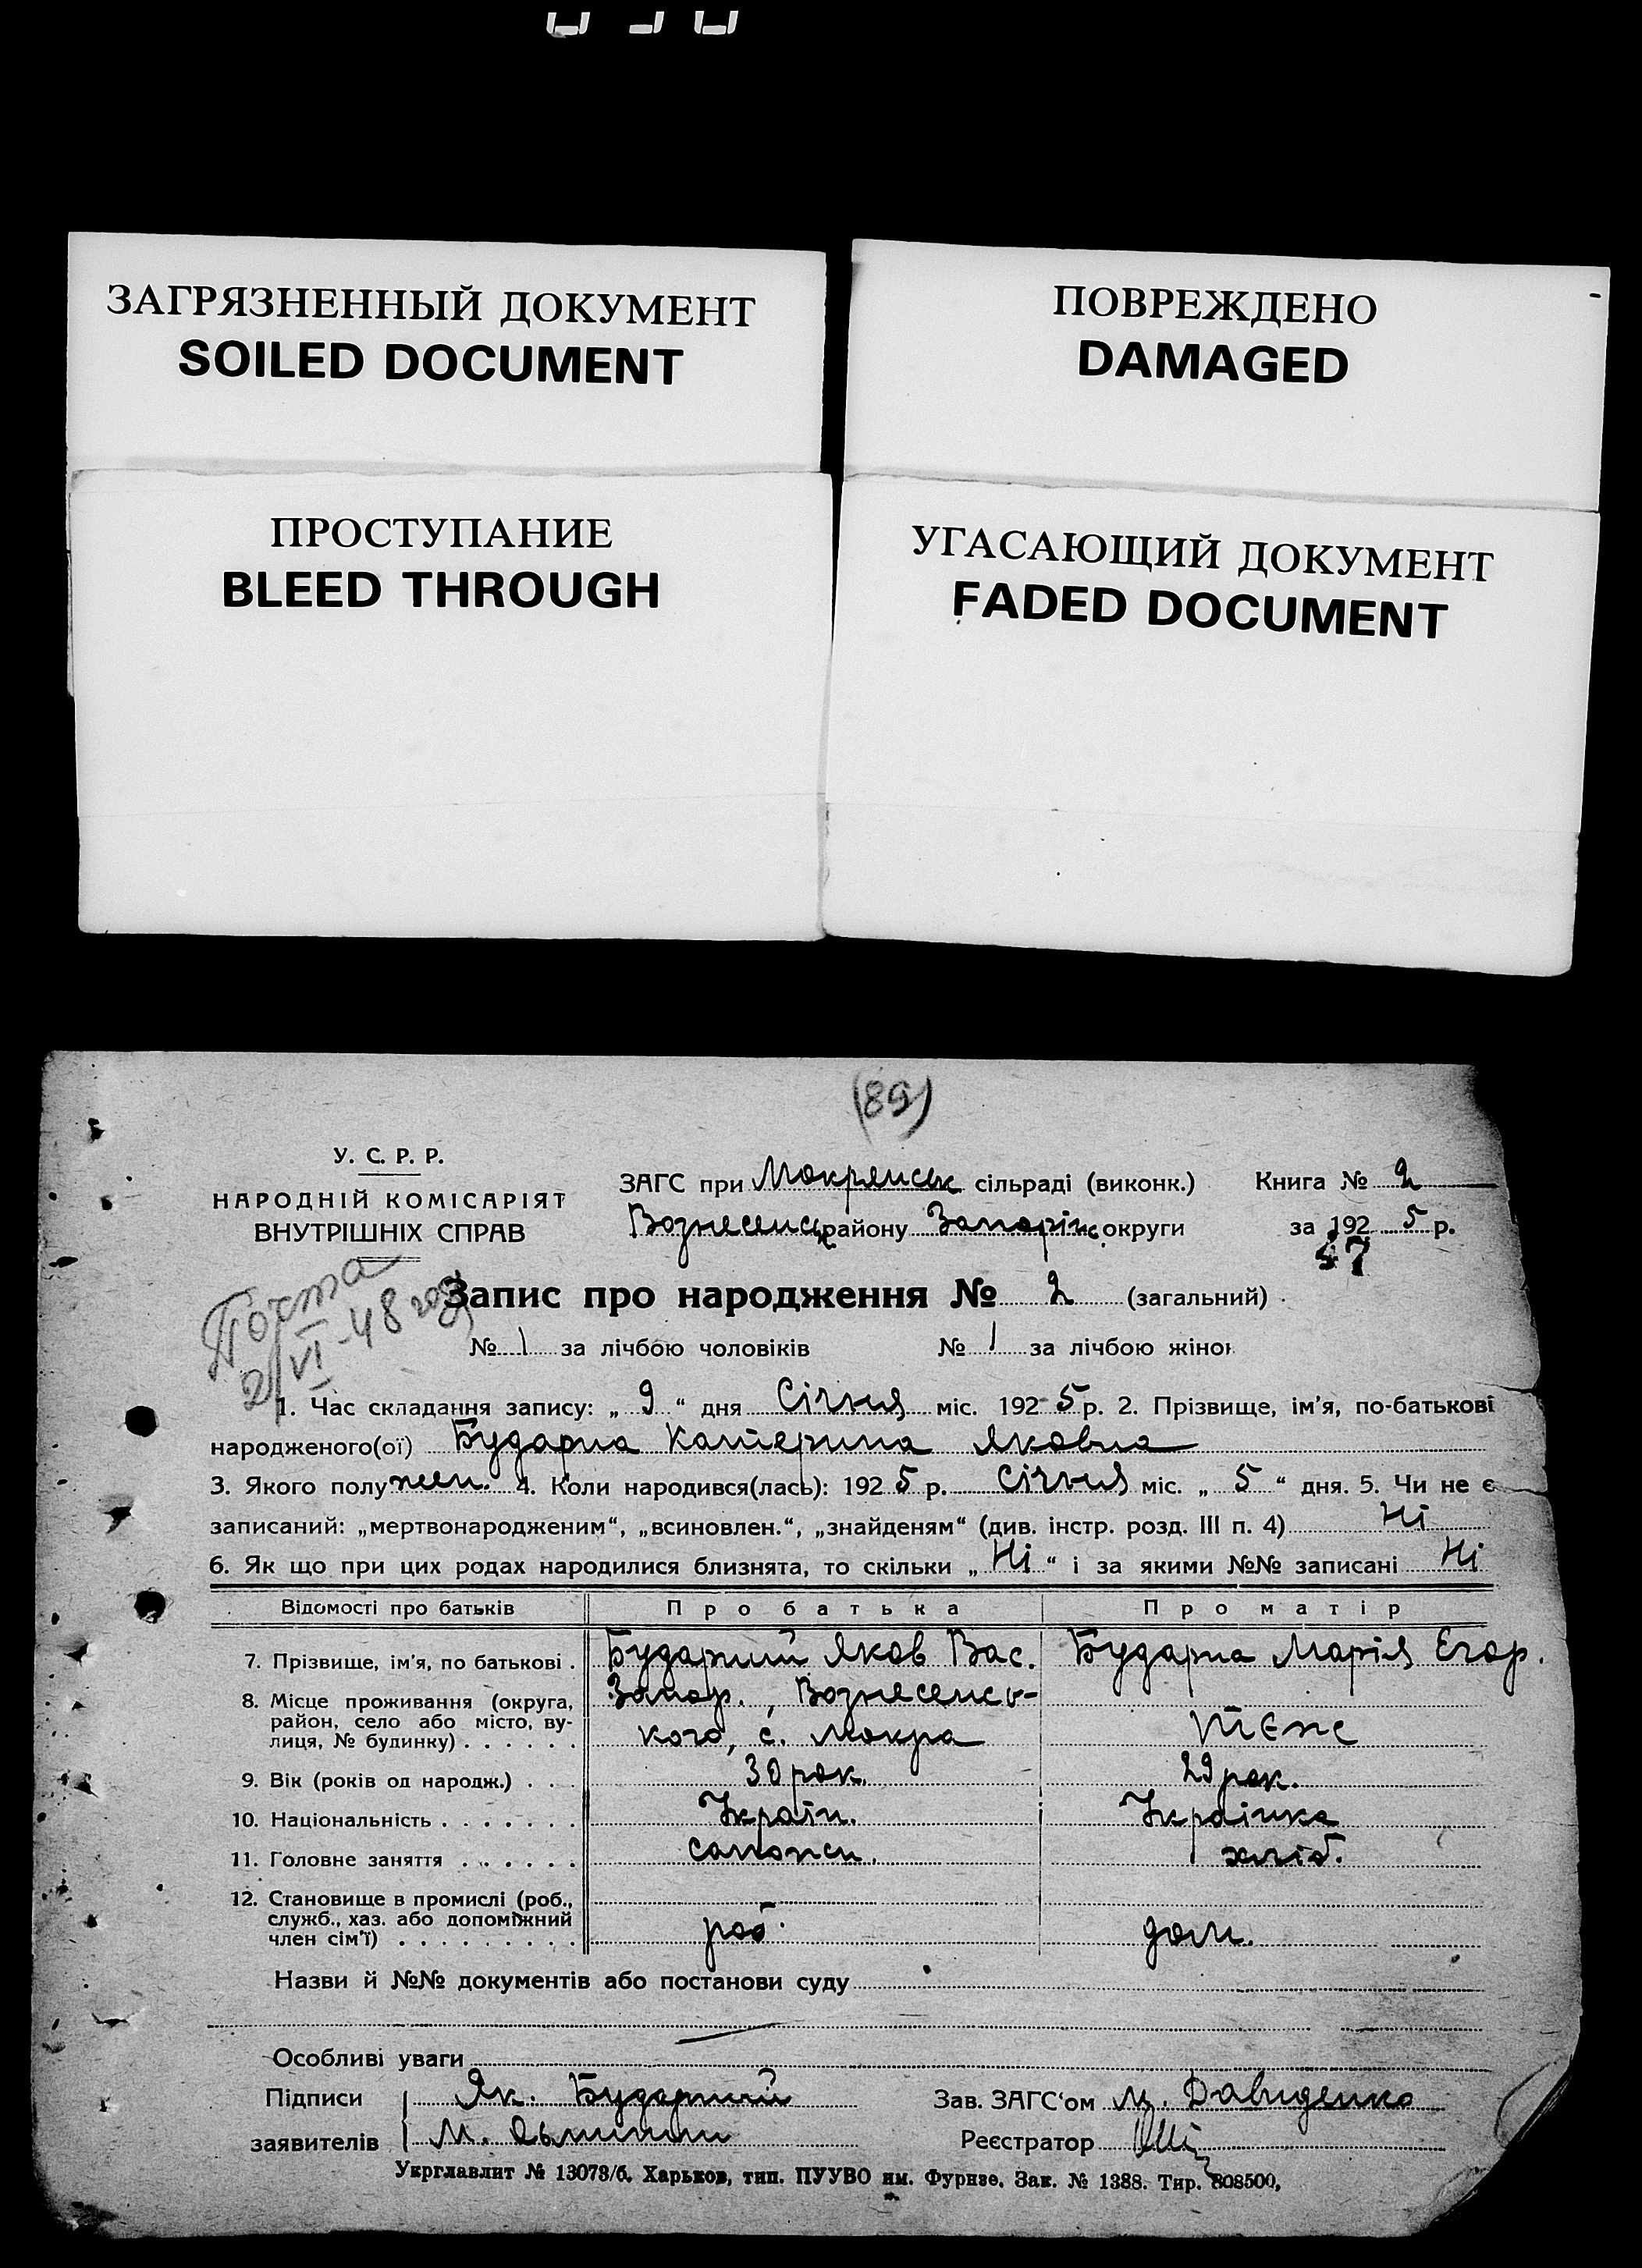 ЗАГРЯЗНЕННЫЙ ДОКУМЕНТ
SOILED DOCUMENT
ПОВРЕЖДЕНО
DAMAGED
ПРОСТУПАНИЕ
BLEED THROUGH
УГАСАЮЩИЙ ДОКУМЕНТ
FADED DOCUMENT
(89)
У. С. Р. Р.
НАРОДНІЙ КОМІСАРІЯТ
ВНУТРІШНІХ СПРАВ
ЗАГС при Мокрянськ сільраді (виконк.) Книга № 2
Вознесенськ району Запоріж. округи за 192 5 р.
47
Почта
2/VI-48 год
Запис про народження № 2 (загальний)
№ 1 за лічбою чоловіків № 1 за лічбою жінок
1. Час складання запису: „ 9 “ дня Січня міс. 192 5 р. 2. Прізвище, ім’я, по-батькові
народженого(ої) Бударна Катерина Яковна
3. Якого полу жен. 4. Коли народився(лась): 192 5 р. Січня міс. „ 5 “ дня. 5. Чи не є
записаний: „мертвонародженим“, „всиновлен.“, „знайденям“ (див. інстр. розд. III п. 4) Ні
6. Як що при цих родах народилися близнята, то скільки „ Ні “ і за якими №№ записані Ні
Відомості про батьків Про батька Про матір
7. Прізвище, ім’я, по батькові . Бударний Яков Вас. Бударна Марія Егор.
8. Місце проживання (округа, район, село або місто, вулиця, № будинку) . . . . . . Запор., Вознесенсь-
кого, с. Мокра теж
9. Вік (років од народж.) . . . 30 рок. 29 рок.
10. Національність . . . . . . . Україн. Українка
11. Головне заняття . . . . . . сапожн. хліб.
12. Становище в промислі (роб., служб., хаз. або допоміжний член сім’ї) . . . . . . . . . роб. дом.
Назви й №№ документів або постанови суду
Особливі уваги
Підписи Як. Бударний Зав. ЗАГС‘ом М. Давиденко
заявителів М. Реєстратор
Укрглавлит № 13073/б. Харьков, тип. ПУУВО им. Фурнзе. Зак. № 1388. Тир. 808500.